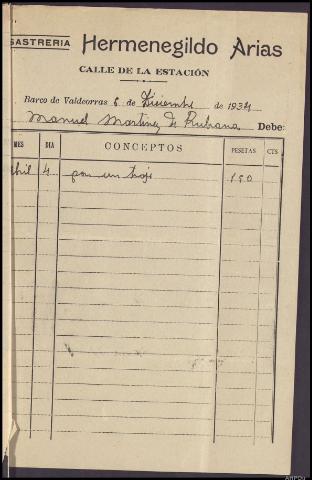 SASTRERIA Hermenegildo Arias
CALLE DE LA ESTACIÓN
Barco de Valdeorras 6 de Diciembre de 1934
Manuel Martinez de Rubiana Debe:
MES DIA CONCEPTOS PESETAS CTS
Abril 4 por un traje 150